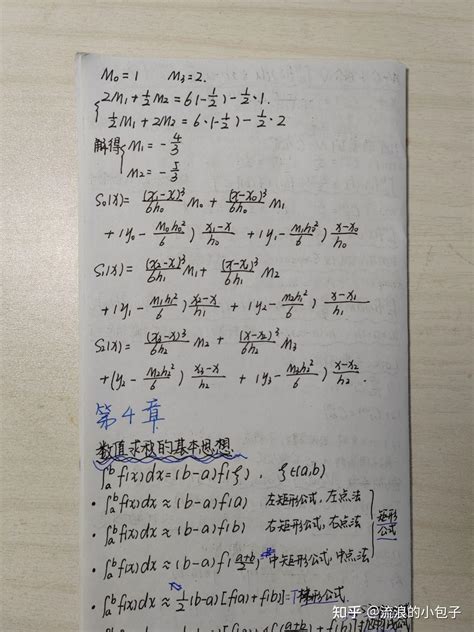 M₀=1 M₃=2.
2M₁+½M₂=6(-½)-½·1.
½M₁+2M₂=6·(-½)-½·2
解得 M₁=-4/3
M₂=-5/3
S₀(x)= (x₁-x)³/6h₀ M₀ + (x-x₀)³/6h₀ M₁
+(y₀- M₀h₀²/6) x₁-x/h₀ +(y₁- M₁h₀²/6) x-x₀/h₀
S₁(x)= (x₂-x)³/6h₁ M₁+ (x-x₁)³/6h₁ M₂
+(y₁- M₁h₁²/6) x₂-x/h₁ +(y₂- M₂h₁²/6) x-x₁/h₁
S₂(x)= (x₃-x)³/6h₂ M₂ + (x-x₂)³/6h₂ M₃
+(y₂- M₂h₂²/6) x₃-x/h₂ +(y₃- M₃h₂²/6) x-x₂/h₂.
第4章
数值求积的基本思想
∫ₐᵇf(x)dx=(b-a)f(ξ), ξ∈(a,b)
·∫ₐᵇf(x)dx≈(b-a)f(a) 左矩形公式,左点法
·∫ₐᵇf(x)dx≈(b-a)f(b) 右矩形公式,右点法
矩形公式
·∫ₐᵇf(x)dx≈(b-a)f(a+b/2) 中矩形公式,中点法
·∫ₐᵇf(x)dx≈½(b-a)[f(a)+f(b)] 梯形公式
知乎 @流浪的小包子